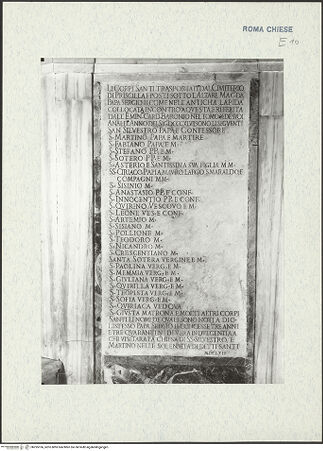 ROMA CHIESE
E 10
LI CORPI SANTI TRASPORTATI DAL CIMITERIO
DI PRISCILLA E POSTI SOTTO L'ALTARE MAGG.
PAPA SERGIO II COME NELL'ANTICHA LAPIDA
COLLOCATA INCONTRO A QVESTA E RIFERITA
DALL'EMIN. CARD. BARONIO NEL TOMO DE
ANALI L'ANNO DEL SIG. SONO LI SEGVENTI
SAN SILVESTRO PAPA E CONFESSORE
S. MARTINO PAPA E MARTIRE
S. FABIANO PAPA E M.
S. STEFANO PP. E M.
S. SOTERO PP. E M.
S. ASTERIO E SANTISSIMA SVA FIGLIA M M.
SS. CIRIACO PAPIA MAVRO LARGO SMARALDO E
COMPAGNI MM.
S. SISINIO M.
S. ANASTASIO PP. E CONF.
S. INNOCENTIO PP. E CONF.
S. QVIRINO VESCOVO E M.
S. LEONE VES. E CONF.
S. ARTEMIO M.
S. SISIANO M.
S. POLLIONE M.
S. TEODORO M.
S. NICANDRO M.
S. CRESCENTIANO M.
SANTA SOTERA VERGINE E M.
S. PAOLINA VERG. E M.
S. MEMMIA VERG. E M.
S. GIVLIANA VERG. E M.
S. QVIRILLA VERG. E M.
S. TEOPISTA VERG. E M.
S. SOFIA VERG. E M.
S. QVIRIACA VEDOVA
S. GIVSTA MATRONA E MOLTI ALTRI CORPI
SANTI LI NOMI DE QVALI SONO NOTI A DIO
L'ISTESSO PAPA SERGIO II CONCESSE TRE ANNI
E TRE QVARANTENE DI VERA INDVLGENTIA A
CHI VISITARA LA CHIESA DI SS. SILVESTRO E
MARTINO NELLE SOLENNITA DI DETTI SANTI